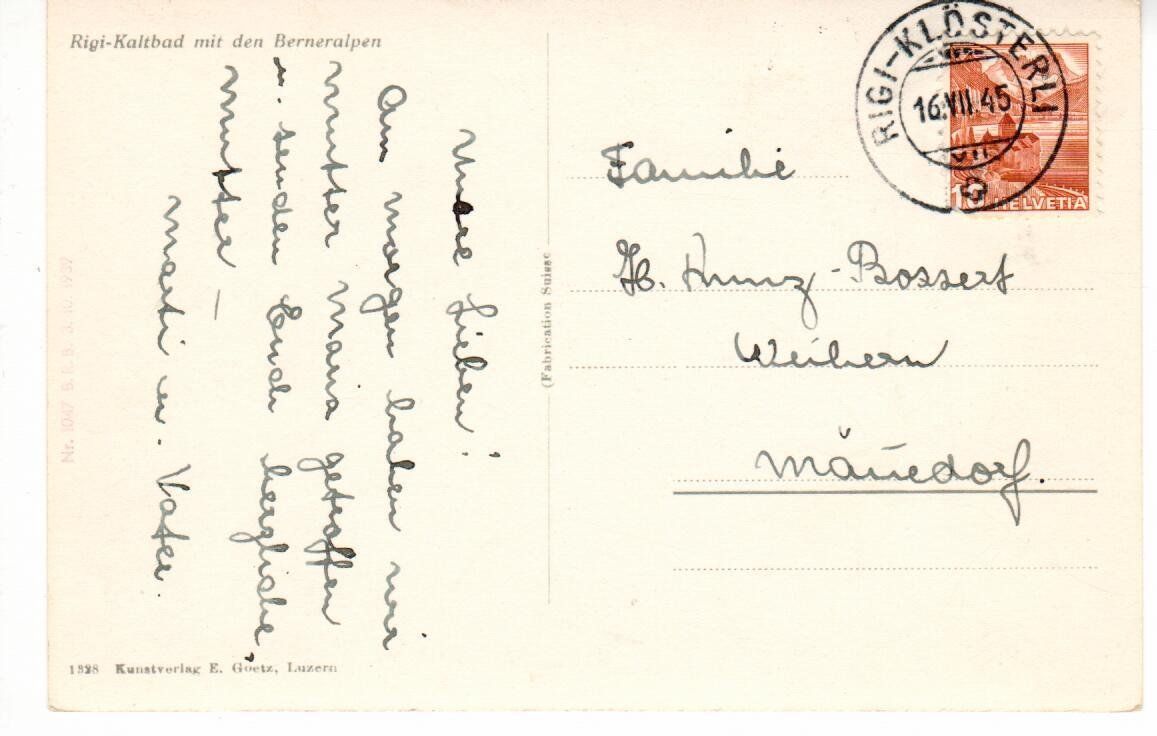 Rigi-Kaltbad mit den Berneralpen
Meine Lieben!
Am morgen haben wir
mutter Maria getroffen
u. senden Euch herzliche
mutter –
Marti u. Vater.
Nr. 1047 B.R.B. 3.10.1939
1328 Kunstverlag E. Goetz, Luzern
(Fabrication Suisse
RIGI-KLÖSTERLI
16.VII.45
10 HELVETIA
Familie
H. Kunz-Bossert
Weihern
Mänedorf.